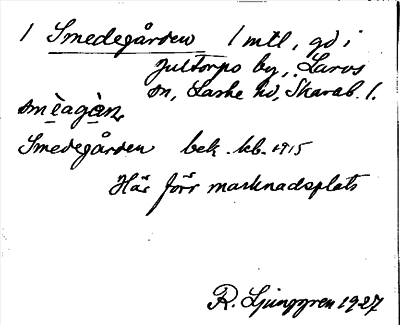 1 Smedegården 1 mtl, gd i
Jultorps by, Larvs
sn, Laske hd, Skarab. l.
smèagàn
Smedegården bek. kb. 1915
Här förr marknadsplats
R. Ljunggren 1927